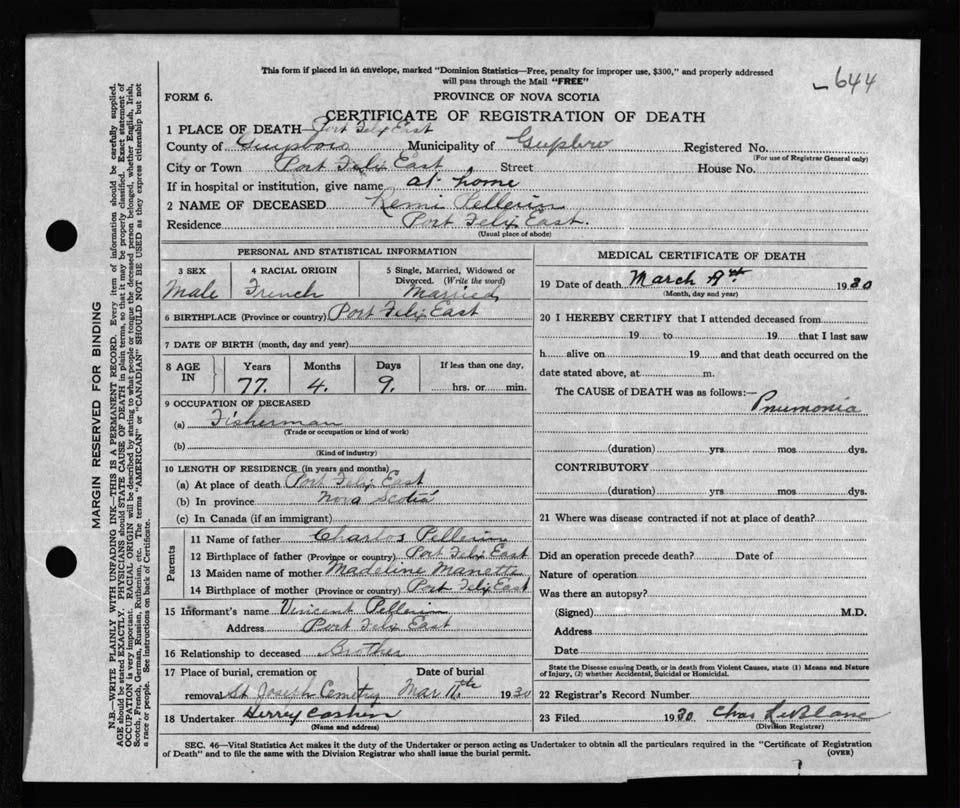 This form if placed in an envelope, marked "Dominion Statistics—Free, penalty for improper use, $300," and properly addressed
will pass through the Mail "FREE"
644
FORM 6.
PROVINCE OF NOVA SCOTIA
CERTIFICATE OF REGISTRATION OF DEATH
1 PLACE OF DEATH—Port Felix East
County of Municipality of Registered No.
(For use of Registrar General only)
City or Town Port Felix East Street House No.
If in hospital or institution, give name at home
2 NAME OF DECEASED Remi Pellerin
Residence Port Felix East.
(Usual place of abode)
PERSONAL AND STATISTICAL INFORMATION
3 SEX 4 RACIAL ORIGIN 5 Single, Married, Widowed or
Divorced. (Write the word)
Male French Married
6 BIRTHPLACE (Province or country) Port Felix East
7 DATE OF BIRTH (month, day and year)
8 AGE IN Years Months Days If less than one day,
77. 4. 9. hrs. or min.
9 OCCUPATION OF DECEASED
(a) Fisherman
(Trade or occupation or kind of work)
(b)
(Kind of industry)
10 LENGTH OF RESIDENCE (in years and months)
(a) At place of death Port Felix East
(b) In province Nova Scotia
(c) In Canada (if an immigrant)
Parents
11 Name of father Charles Pellerin
12 Birthplace of father (Province or country) Port Felix East
13 Maiden name of mother Madeline Manette
14 Birthplace of mother (Province or country) Port Felix East
15 Informant's name Vincent Pellerin
Address Port Felix East
16 Relationship to deceased Brother
17 Place of burial, cremation or Date of burial
removal St Joseph Cemetry Mar 11th 1930
18 Undertaker
(Name and address)
MEDICAL CERTIFICATE OF DEATH
19 Date of death March 9th 1930
(Month, day and year)
20 I HEREBY CERTIFY that I attended deceased from
19 to 19 that I last saw
h alive on 19 and that death occurred on the
date stated above, at m.
The CAUSE OF DEATH was as follows:—
Pnumonia
(duration) yrs. mos. dys.
CONTRIBUTORY
(duration) yrs. mos. dys.
21 Where was disease contracted if not at place of death?
Did an operation precede death? Date of
Nature of operation
Was there an autopsy?
(Signed) M.D.
Address
Date
State the Disease causing Death, or in death from Violent Causes, state (1) Means and Nature
of Injury, (2) whether Accidental, Suicidal or Homicidal.
22 Registrar's Record Number
23 Filed 1930 Chas LeBlanc
(Division Registrar)
SEC. 46—Vital Statistics Act makes it the duty of the Undertaker or person acting as Undertaker to obtain all the particulars required in the "Certificate of Registration
of Death" and to file the same with the Division Registrar who shall issue the burial permit.
(OVER)
MARGIN RESERVED FOR BINDING
N.B.—WRITE PLAINLY WITH UNFADING INK—THIS IS A PERMANENT RECORD. Every item of information should be carefully supplied.
AGE should be stated EXACTLY. PHYSICIANS should STATE CAUSE OF DEATH in plain terms, so that it may be properly classified. Exact statement of
OCCUPATION is very important. RACIAL ORIGIN will be described by stating to what people or tongue the deceased person belonged, whether English, Irish,
Scotch, French, German, Russian, Ruthenian, etc. The terms "AMERICAN" or "CANADIAN" SHOULD NOT BE USED as they express citizenship but not
a race or people. See instructions on back of Certificate.